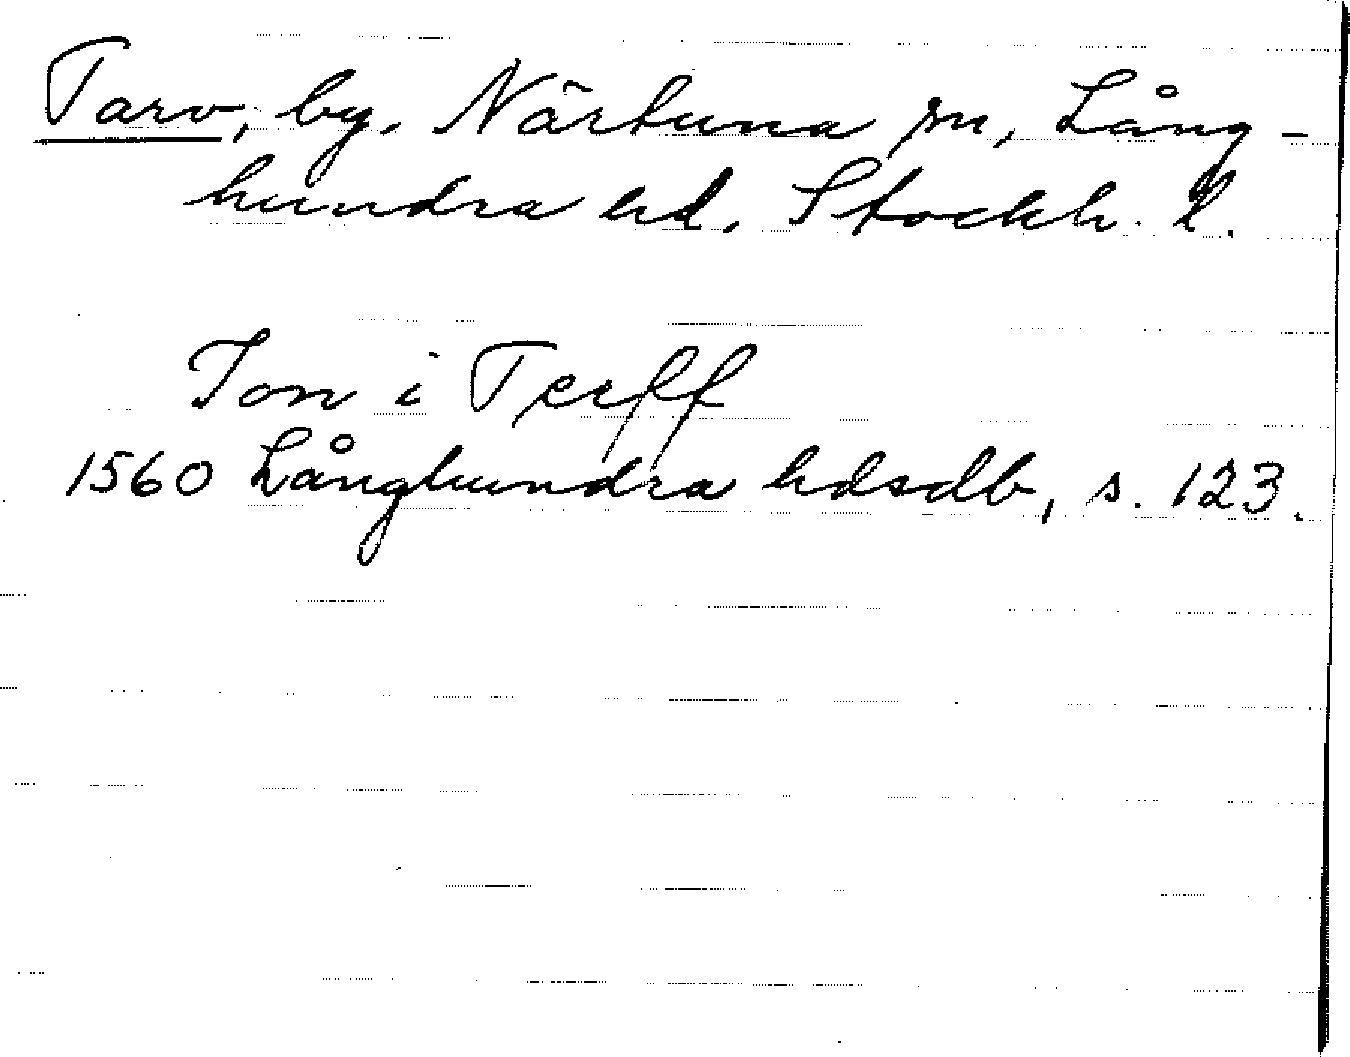 Tarv, by, Närtuna sn, Lång-
hundra hd. Stockh. l.
Jon i Terff
1560 Långhundra hdsdb, s. 123.